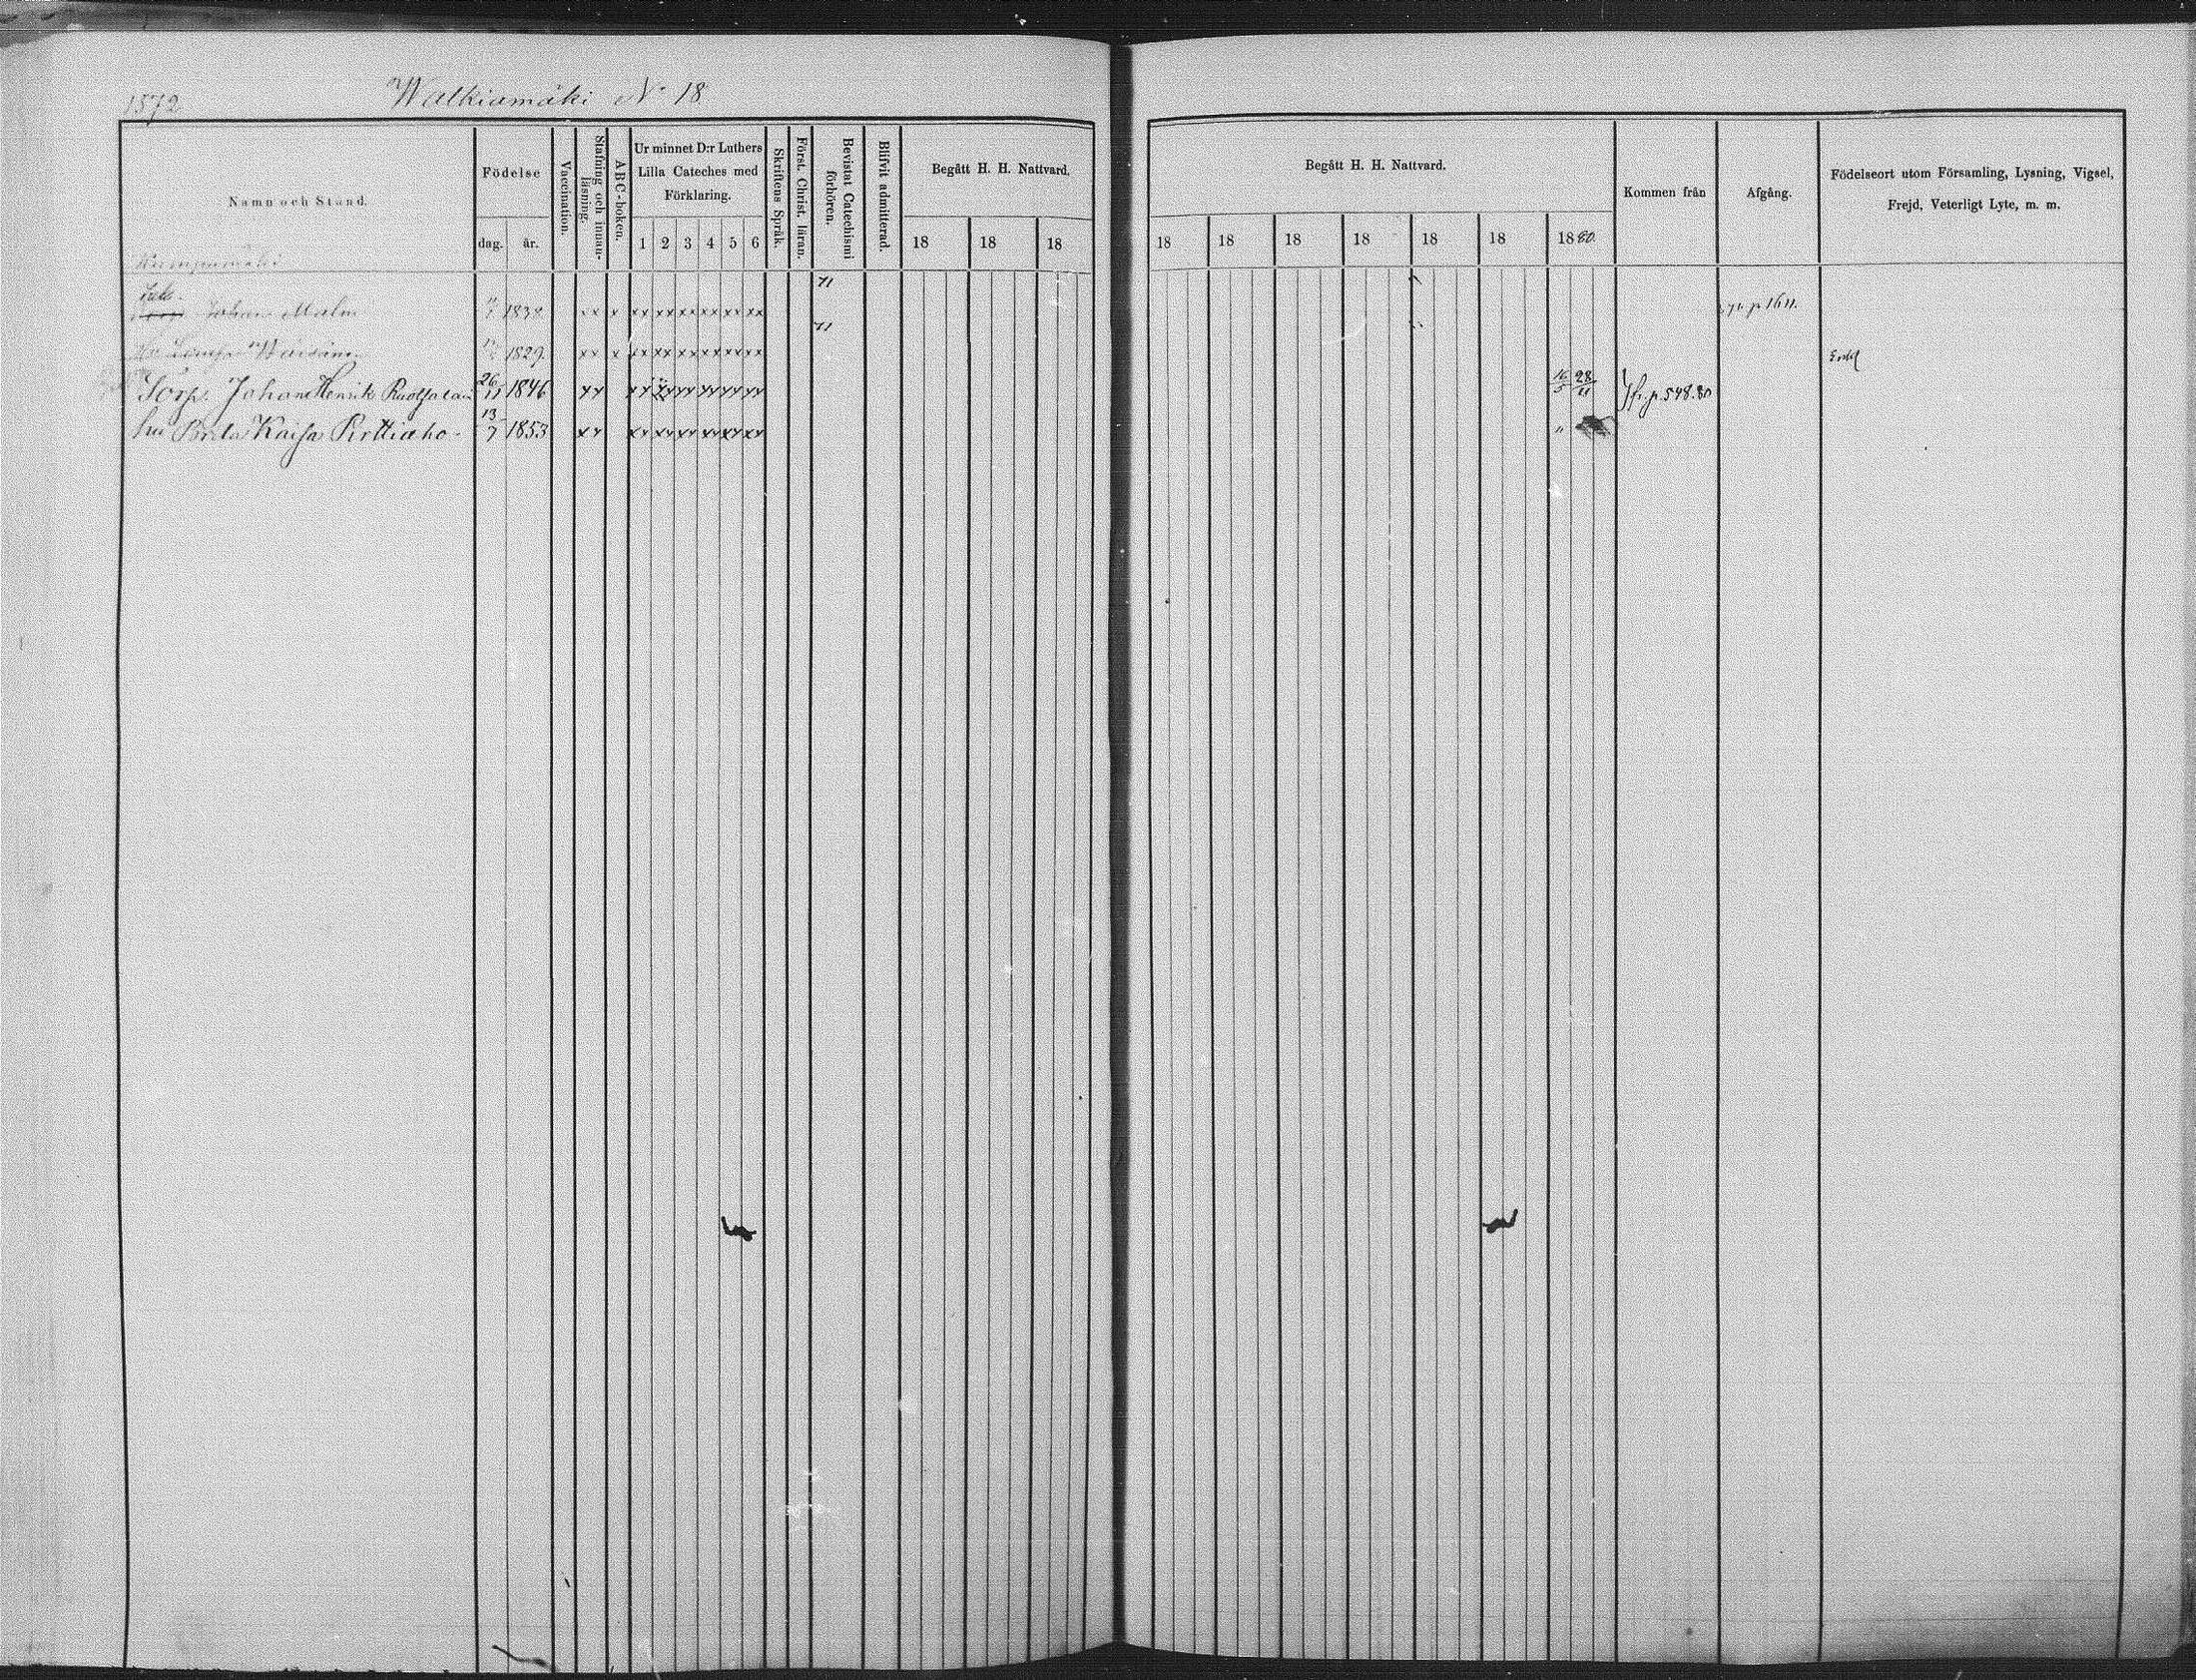 1872
Walkiamäki No 18
Namn och Stånd.
Födelse
dag. år.
Vaccination.
Stafning och innanläsning.
ABC-boken.
Ur minnet D:r Luthers
Lilla Cateches med
Förklaring.
1 2 3 4 5 6
Skriftens Språk.
Först. Christ. läran.
Bevistat Catechismi förhören.
Blifvit admitterad.
Begått H. H. Nattvard.
18 18 18
Begått H. H. Nattvard.
18 18 18 18 18 18 1880.
Kommen från
Afgång.
Födelseort utom Församling, Lysning, Vigsel,
Frejd, Veterligt Lyte, m. m.
71
Johan Malm 1838 xx x xx xx xx xx xx xx p 1611.
71
1829. xx x xx xx xx xx xx xx Enkl
Sorp. Johan Henrik 26/11 1846 xx xx xx xx xx xx xx 16/5 28/11 fr. p. 548.80
hu Brita Kaisa Pirttiaho 13/7 1853 xx xx xx xx xx xx xx "